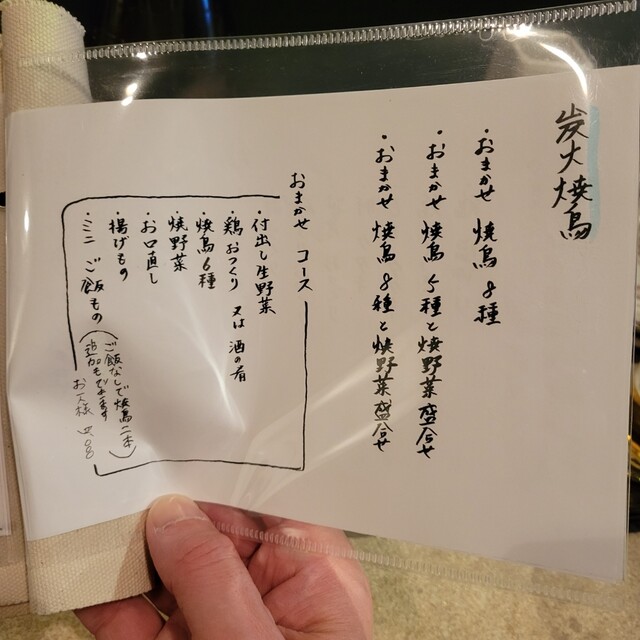 炭火焼鳥
・おまかせ 焼鳥8種
・おまかせ 焼鳥5種と焼野菜盛合せ
・おまかせ 焼鳥8種と焼野菜盛合せ
おまかせ コース
・付出し生野菜
・鶏おつくり 又は 酒の肴
・焼鳥6種
・焼野菜
・お口直し
・揚げもの
・ミニ ご飯もの
(ご飯なしで焼鳥二本
追加もできます)
お一人様